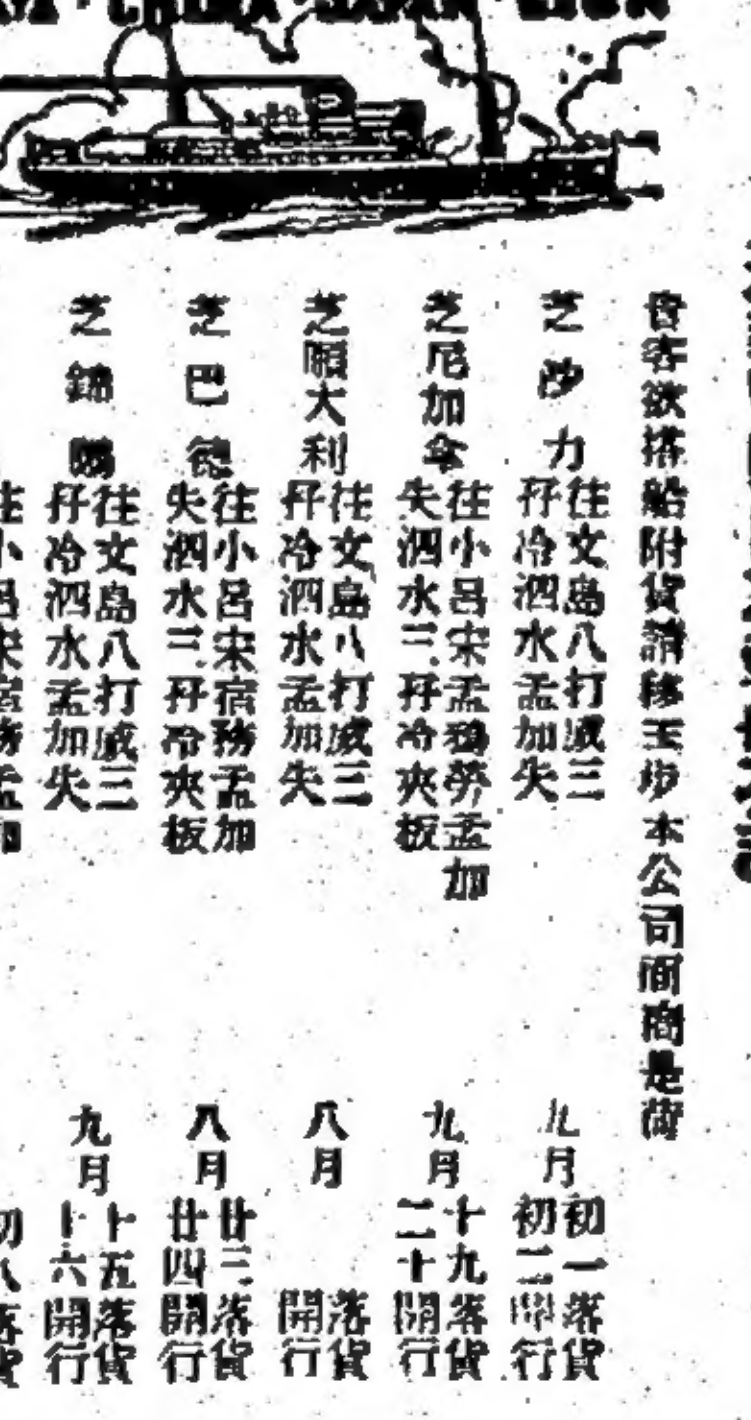 CHINA · JAPAN · LIJN
貴客欲搭船附貨請移玉步本公司面商是荷
芝沙力
往文島八打威三
孖冷泗水孟加失
九月
初一落貨
初二開行
芝尼加拿
往小呂宋孟鴉勞孟加
失泗水三孖冷夾板
九月
十九落貨
二十開行
芝願大利
往文島八打威三
孖冷泗水孟加失
八月
落貨
開行
芝巴德
往小呂宋宿務孟加
失泗水三孖冷夾板
八月
廿三落貨
廿四開行
芝錦
往文島八打威三
孖冷泗水孟加失
九月
十五落貨
十六開行